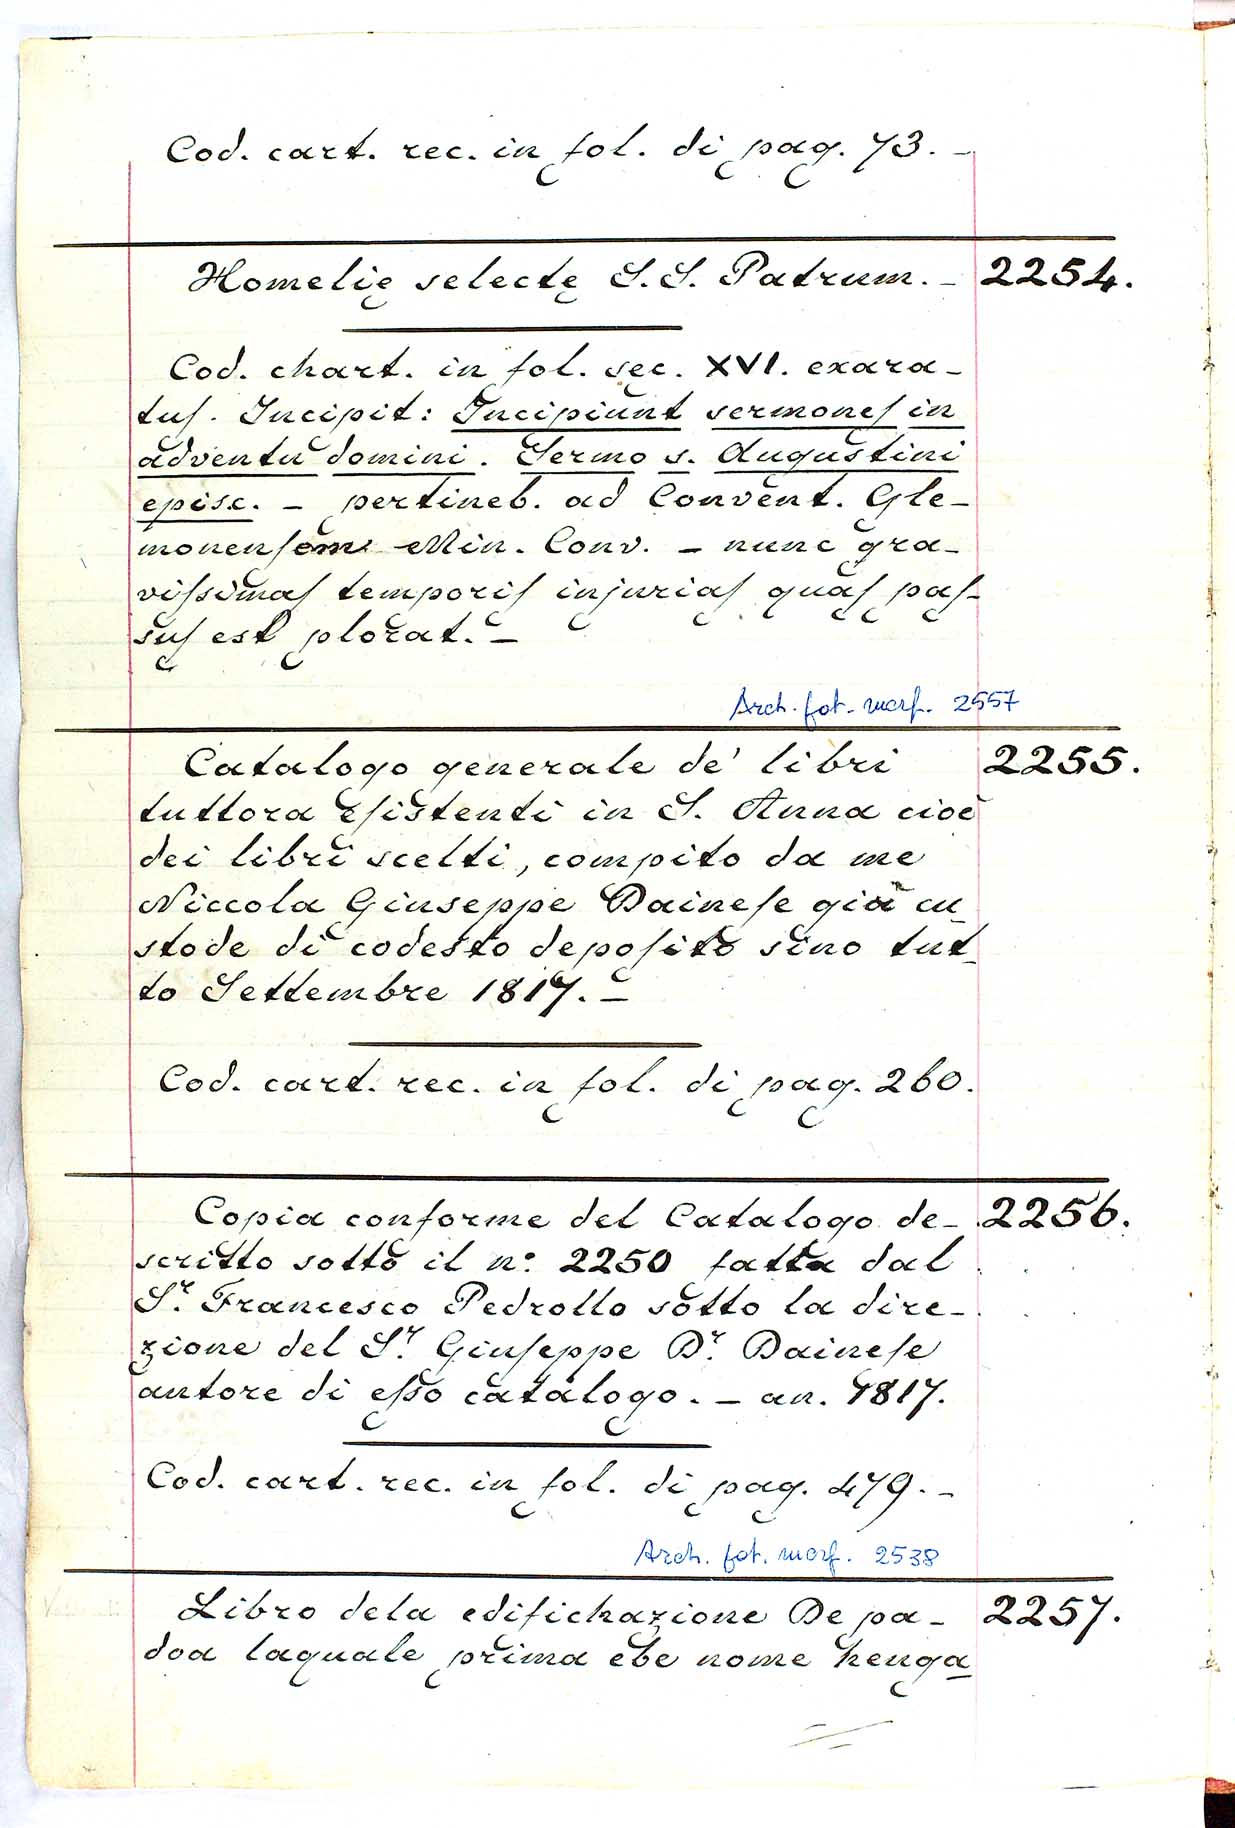 Cod. cart. rec. in fol. di pag. 73. –
Homelię selectę S.S. Patrum. – 2254.
Cod. chart. in fol. sec. XVI. exara-
tuſ. Incipit: Incipiunt sermoneſ in
adventu domini. Sermo s. Augustini
episc. – pertineb. ad Convent. Gle-
monenſem Min. Conv. – nunc gra-
viſsimaſ temporiſ injuriaſ quaſ paſ-
suſ est plorat. –
Arch. fot. marf. 2557
Catalogo generale de' libri 2255.
tuttora eſistenti in S. Anna cioè
dei libri scelti, compito da me
Niccola Giuseppe Daineſe già cu
stode di codesto depoſito sino tut-
to Settembre 1817. –
Cod. cart. rec. in fol. di pag. 260.
Copia conforme del Catalogo de- 2256.
scritto sotto il n.º 2250 fatta dal
S.r Francesco Pedrollo sotto la dire-
zione del S.r Giuſeppe D.r Daineſe
autore di eſso catalogo. – an. 1817.
Cod. cart. rec. in fol. di pag. 479. –
Arch. fot. marf. 2538
Libro dela edifichazione De pa- 2257.
doa laquale prima ebe nome henga